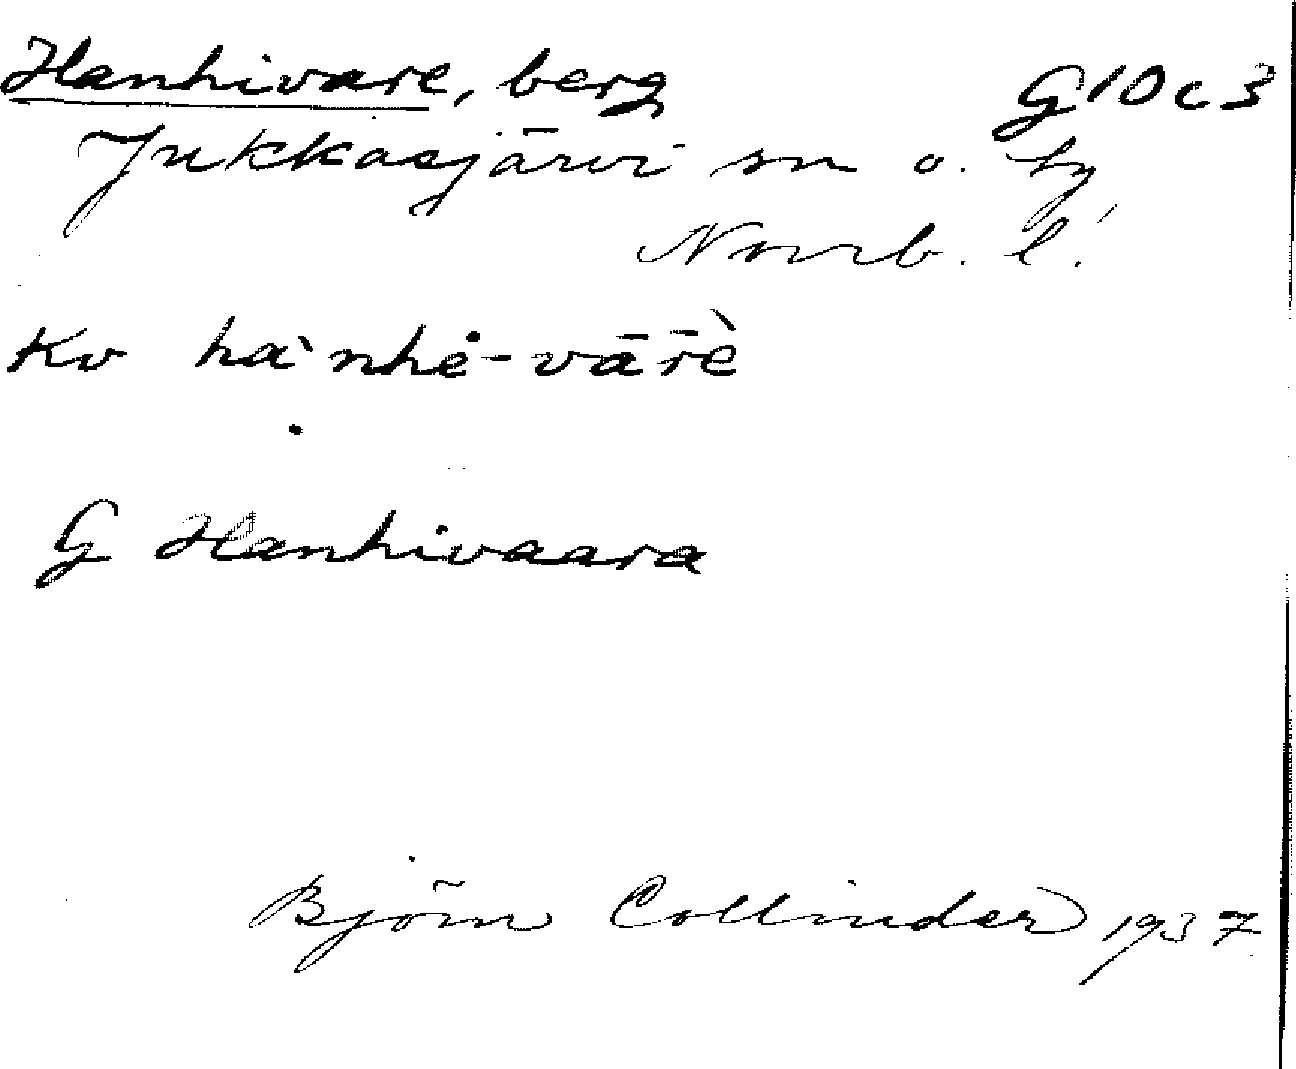 Hanhivare, berg G10c3
Jukkasjärvi sn o. by
Norrb. l.
Kv hà nhė-vār̄è
G Hanhivaara
Björn Collinder 1937